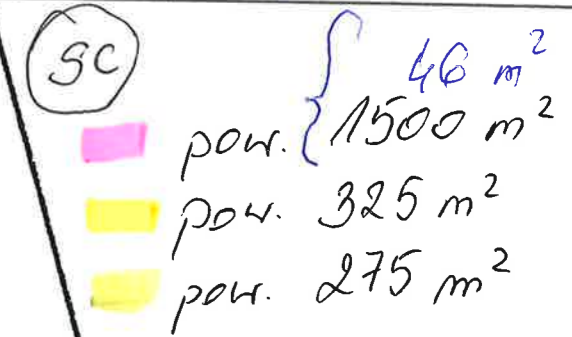 SC
46 m²
pow. { 1500 m²
pow. 325 m²
pow. 275 m²